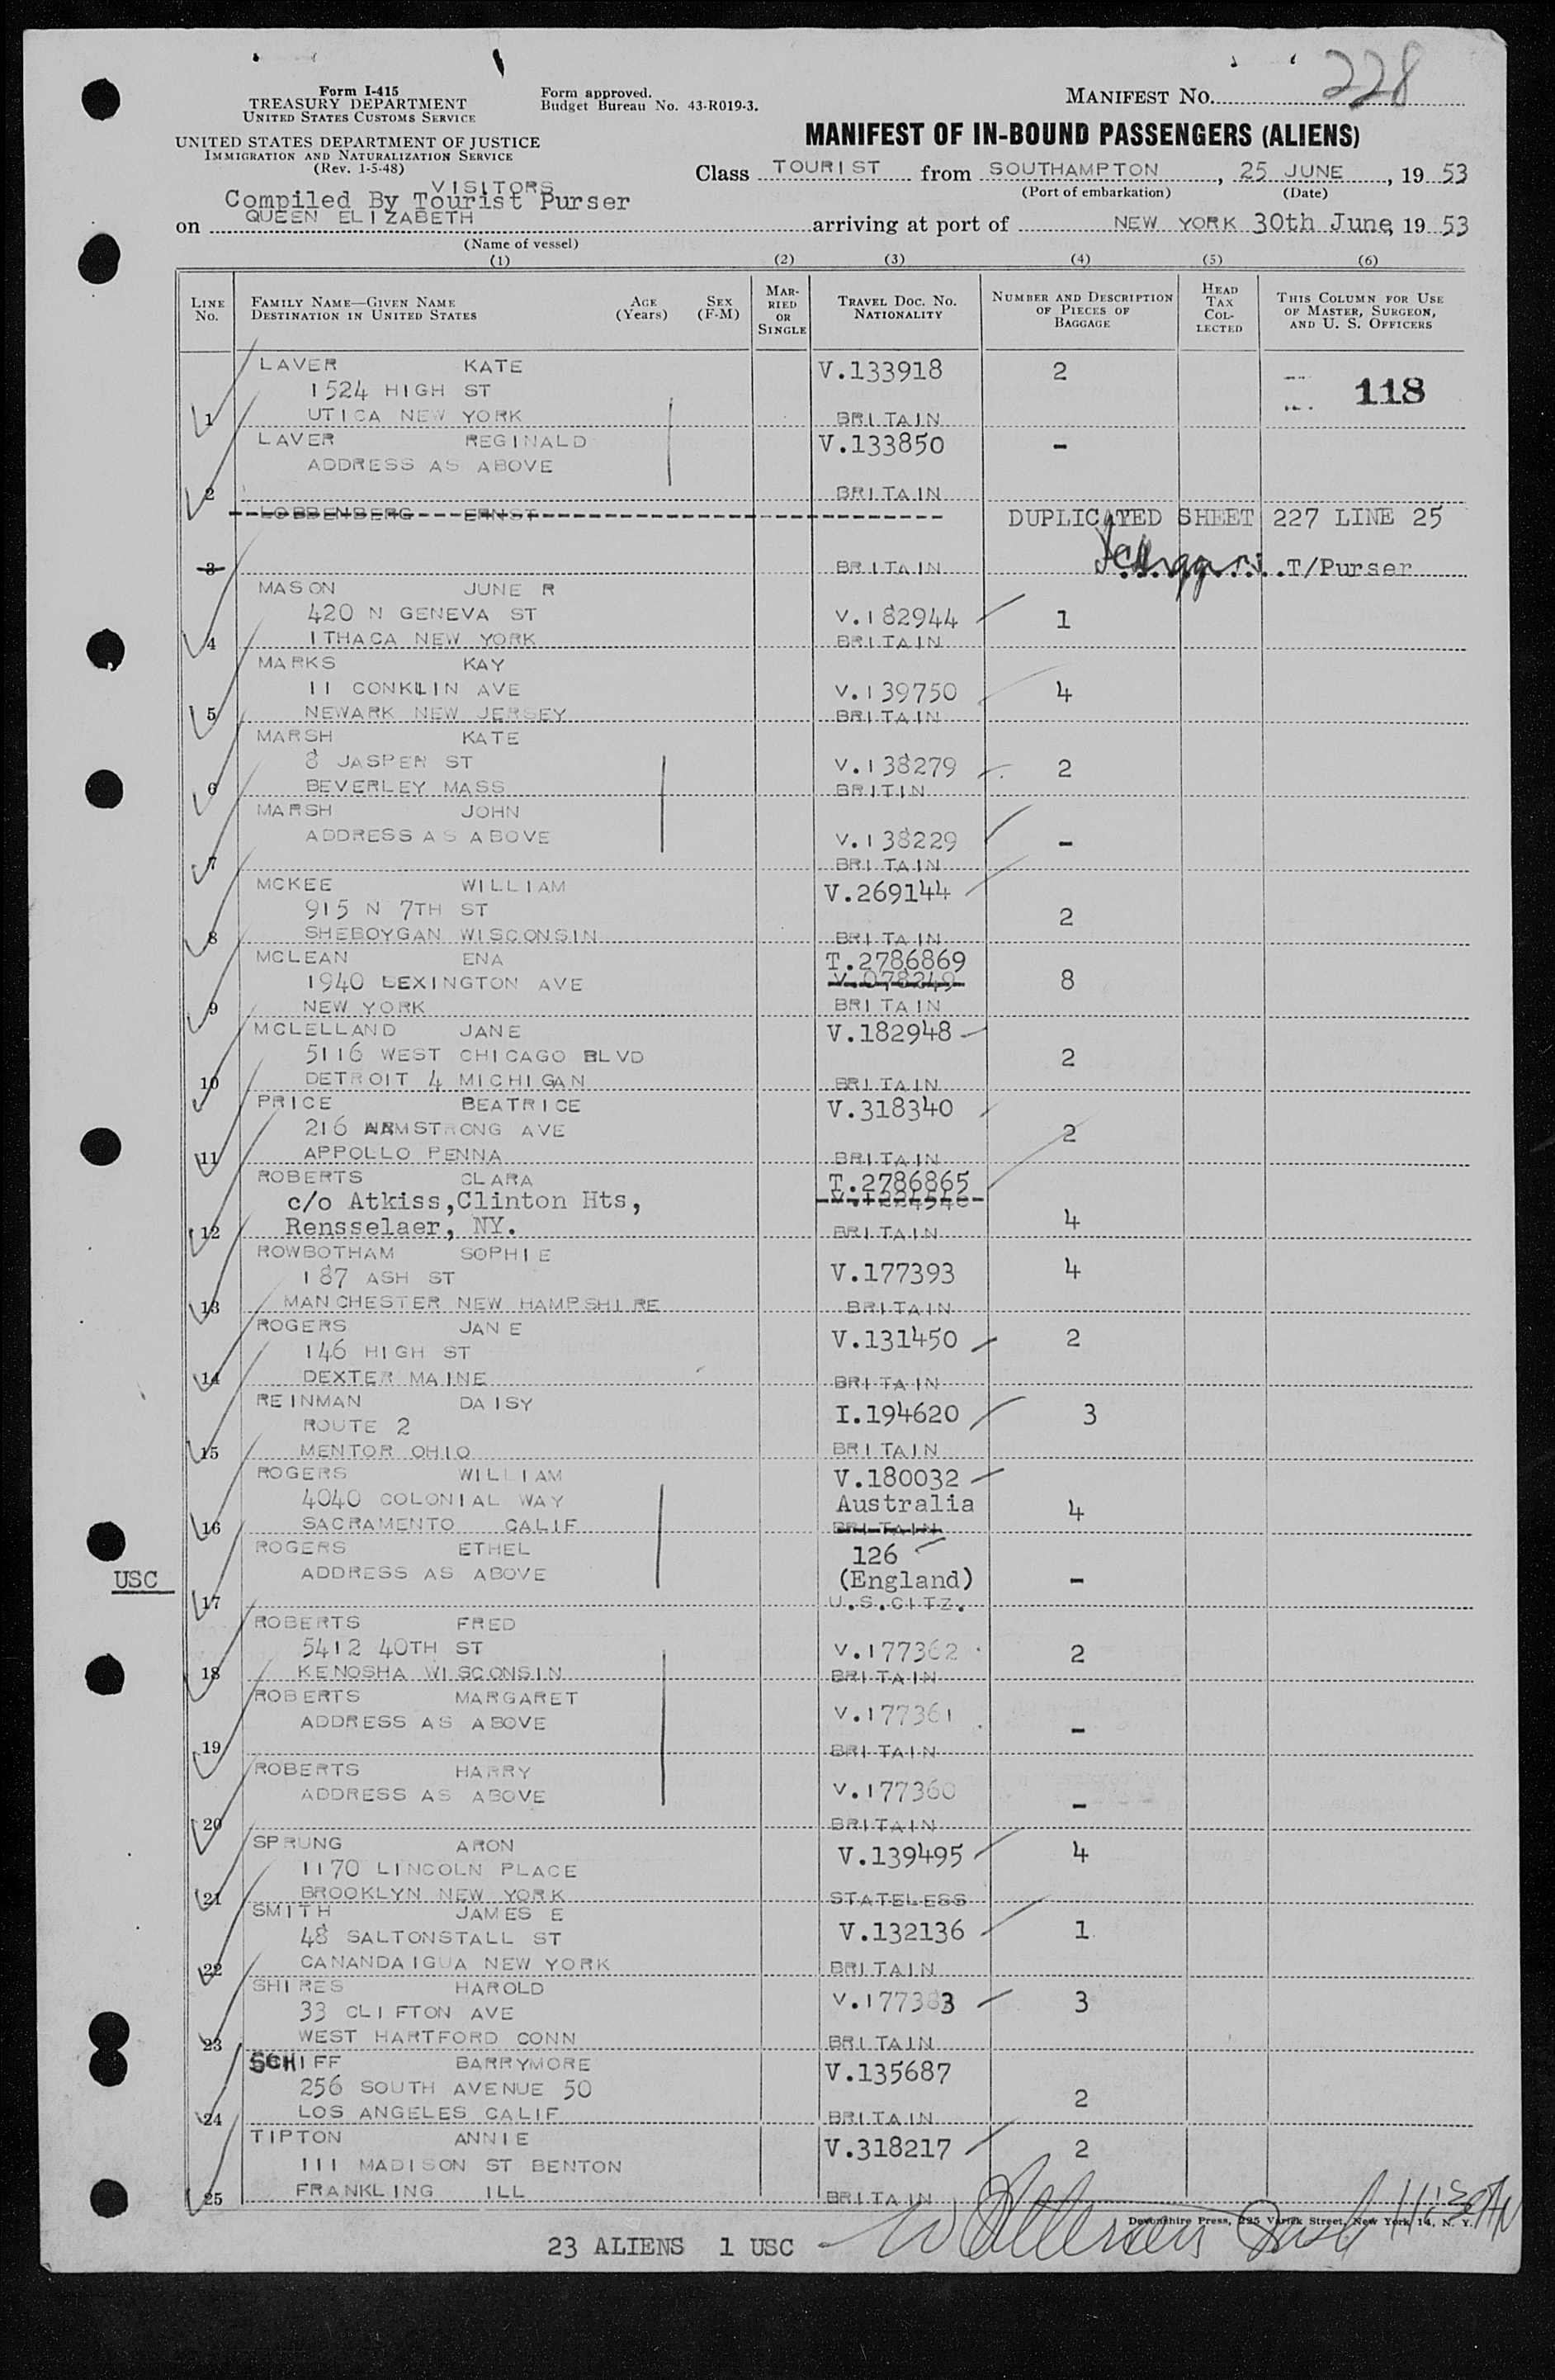 228
Form I-415
TREASURY DEPARTMENT
UNITED STATES CUSTOMS SERVICE
Form approved.
Budget Bureau No. 43-R019-3.
MANIFEST NO.
UNITED STATES DEPARTMENT OF JUSTICE
IMMIGRATION AND NATURALIZATION SERVICE
(Rev. 1-5-48)
MANIFEST OF IN-BOUND PASSENGERS (ALIENS)
Class TOURIST from SOUTHAMPTON, 25 JUNE, 19 53
(Port of embarkation) (Date)
VISITORS
Compiled By Tourist Purser
on QUEEN ELIZABETH arriving at port of NEW YORK 30th June, 19 53
(Name of vessel)
(1) (2) (3) (4) (5) (6)
LINE No.
FAMILY NAME—GIVEN NAME
DESTINATION IN UNITED STATES
AGE (Years)
SEX (F-M)
MARRIED OR SINGLE
TRAVEL DOC. NO.
NATIONALITY
NUMBER AND DESCRIPTION OF PIECES OF BAGGAGE
HEAD TAX COLLECTED
THIS COLUMN FOR USE OF MASTER, SURGEON, AND U. S. OFFICERS
LAVER KATE V.133918 2
1524 HIGH ST 118
1 UTICA NEW YORK BRITAIN
LAVER REGINALD V.133850 -
ADDRESS AS ABOVE
2 BRITAIN
LOBBENBERG ERNST DUPLICATED SHEET 227 LINE 25
3 BRITAIN T/Purser
MASON JUNE R
420 N GENEVA ST V.182944 1
4 ITHACA NEW YORK BRITAIN
MARKS KAY
11 CONKLIN AVE V.139750 4
5 NEWARK NEW JERSEY BRITAIN
MARSH KATE
8 JASPER ST V.138279 2
6 BEVERLEY MASS BRITIN
MARSH JOHN
ADDRESS AS ABOVE V.138229 -
7 BRITAIN
MCKEE WILLIAM V.269144
915 N 7TH ST 2
8 SHEBOYGAN WISCONSIN BRITAIN
MCLEAN ENA T.2786869
1940 LEXINGTON AVE V.078249 8
9 NEW YORK BRITAIN
MCLELLAND JANE V.182948
5116 WEST CHICAGO BLVD 2
10 DETROIT 4 MICHIGAN BRITAIN
PRICE BEATRICE V.318340
216 ARMSTRONG AVE 2
11 APPOLLO PENNA BRITAIN
ROBERTS CLARA T.2786865
c/o Atkiss,Clinton Hts,
12 Rensselaer, NY. BRITAIN 4
ROWBOTHAM SOPHIE
187 ASH ST V.177393 4
13 MANCHESTER NEW HAMPSHIRE BRITAIN
ROGERS JANE V.131450 2
146 HIGH ST
14 DEXTER MAINE BRITAIN
REINMAN DAISY I.194620 3
ROUTE 2
15 MENTOR OHIO BRITAIN
ROGERS WILLIAM V.180032
4040 COLONIAL WAY Australia 4
16 SACRAMENTO CALIF BRITAIN
ROGERS ETHEL 126
USC ADDRESS AS ABOVE (England) -
17 U.S.CITZ.
ROBERTS FRED
5412 40TH ST V.177362 2
18 KENOSHA WISCONSIN BRITAIN
ROBERTS MARGARET
ADDRESS AS ABOVE V.177361 -
19 BRITAIN
ROBERTS HARRY
ADDRESS AS ABOVE V.177360 -
20 BRITAIN
SPRUNG ARON V.139495 4
1170 LINCOLN PLACE
21 BROOKLYN NEW YORK STATELESS
SMITH JAMES E
48 SALTONSTALL ST V.132136 1
22 CANANDAIGUA NEW YORK BRITAIN
SHIRES HAROLD
33 CLIFTON AVE V.177383 3
23 WEST HARTFORD CONN BRITAIN
SCHIFF BARRYMORE V.135687
256 SOUTH AVENUE 50 2
24 LOS ANGELES CALIF BRITAIN
TIPTON ANNIE V.318217 2
111 MADISON ST BENTON
25 FRANKLING ILL BRITAIN
Devonshire Press, 225 Varick Street, New York 14, N. Y.
23 ALIENS 1 USC